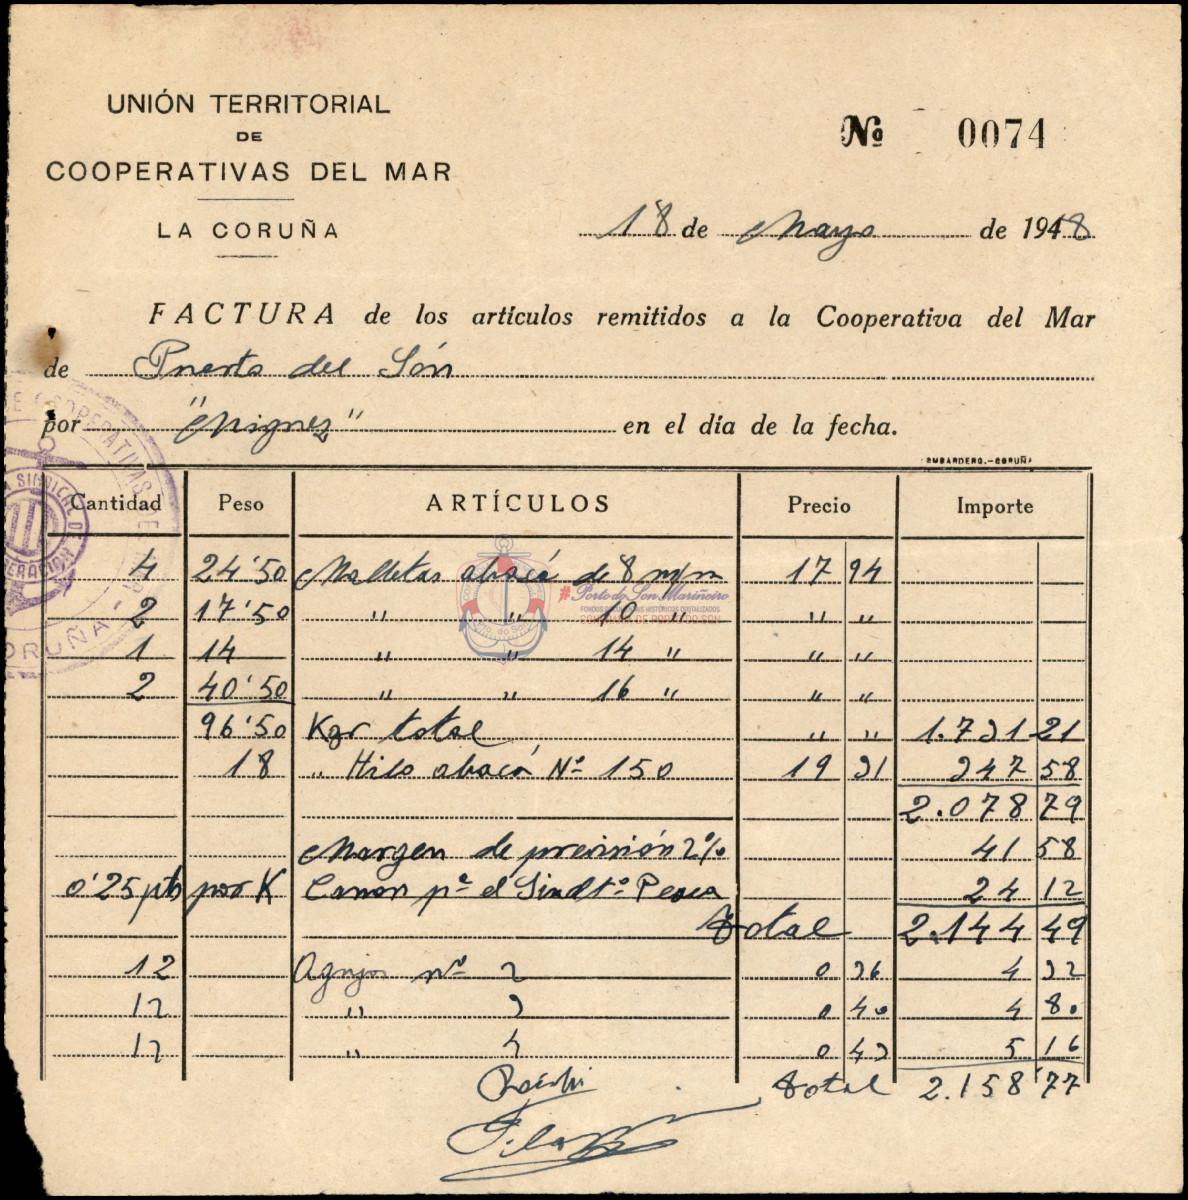 UNIÓN TERRITORIAL
DE
COOPERATIVAS DEL MAR
LA CORUÑA
Nº 0074
18 de Mayo de 1948
FACTURA de los artículos remitidos a la Cooperativa del Mar
de Puerto del Són
por "Miguez" en el día de la fecha.
OMBARDERO.-CORUÑA
Cantidad Peso ARTÍCULOS Precio Importe
4 24'50 Malletas abacá de 8 m/m 17 94
2 17'50 " " 10 " " "
1 14 " " 14 " " "
2 40'50 " " 16 " " "
96'50 Kgr total " " 1.731 21
18 " Hilo abacá Nº 150 19 31 347 58
2.078 79
Margen de previsión 2% 41 58
0'25 pts por K Canon pª el Sindtº Pesca 24 12
Total 2.144 49
12 Agujas nº 2 0 36 4 32
12 " 3 0 40 4 80
12 " 4 0 43 5 16
Recibí Total 2.158'77
#Porto do Son Mariñeiro
COOPERATIVAS
SINDICAL DE
CORUÑA